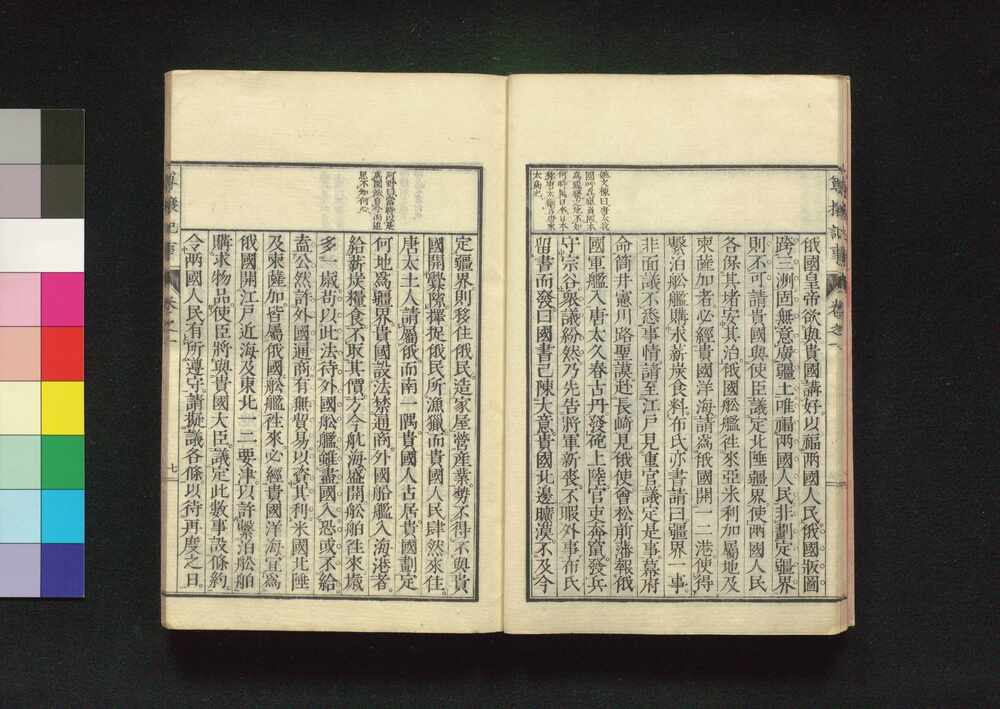 尊攘記事
卷之一
俄國皇帝欲與貴國講好以福兩國人民俄國版圖
跨三洲固無意廣疆土唯福兩國人民非劃定疆界
則不可請貴國與使臣議定北陲疆界使兩國人民
各保其堵安其治俄國舩艦徃來亞米利加屬地及
柬薩加者必經貴國洋海請為俄國開一二港使得
繫泊舩艦購求薪炭食料布氏亦書請曰疆界一事
非面議不悉事情請至江戶見重官議定是事幕府
命筒井憲川路聖謨赴長崎見俄使會松前藩報俄
國軍艦入唐太久春古丹發砲上陸官吏奔竄發兵
守宗谷衆議紛然乃先告將軍新喪不暇外事布氏
留書而發曰國書已陳大意貴國北邊曠漠不及今
定疆界則移住俄民造家屋營産業勢不得不與貴
國開釁隙擇捉俄民所漁獵而貴國人民肆然來住
唐太土人請屬俄而南一隅貴國人占居貴國劃定
何地為疆界貴國設法禁通商外國船艦入海港者
給薪炭糧食不取其價方今航海盛開舩舶往來歲
多一歲苟以此法待外國舩艦雖盡國入恐或不給
盍公然許外國通商有無貿易以資其利米國北陲
及柬薩加皆屬俄國舩艦徃來必經貴國洋海宜為
俄國開江戶近海及東北一二要津以許繫泊舩舶
購求物品使臣將與貴國大臣議定此數事設條約
令兩國人民有所遵守請擬議各條以待再度之日
卷之一
七